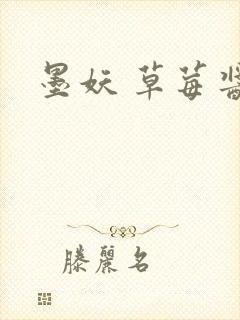 墨妖 草莓酱
滕丽名